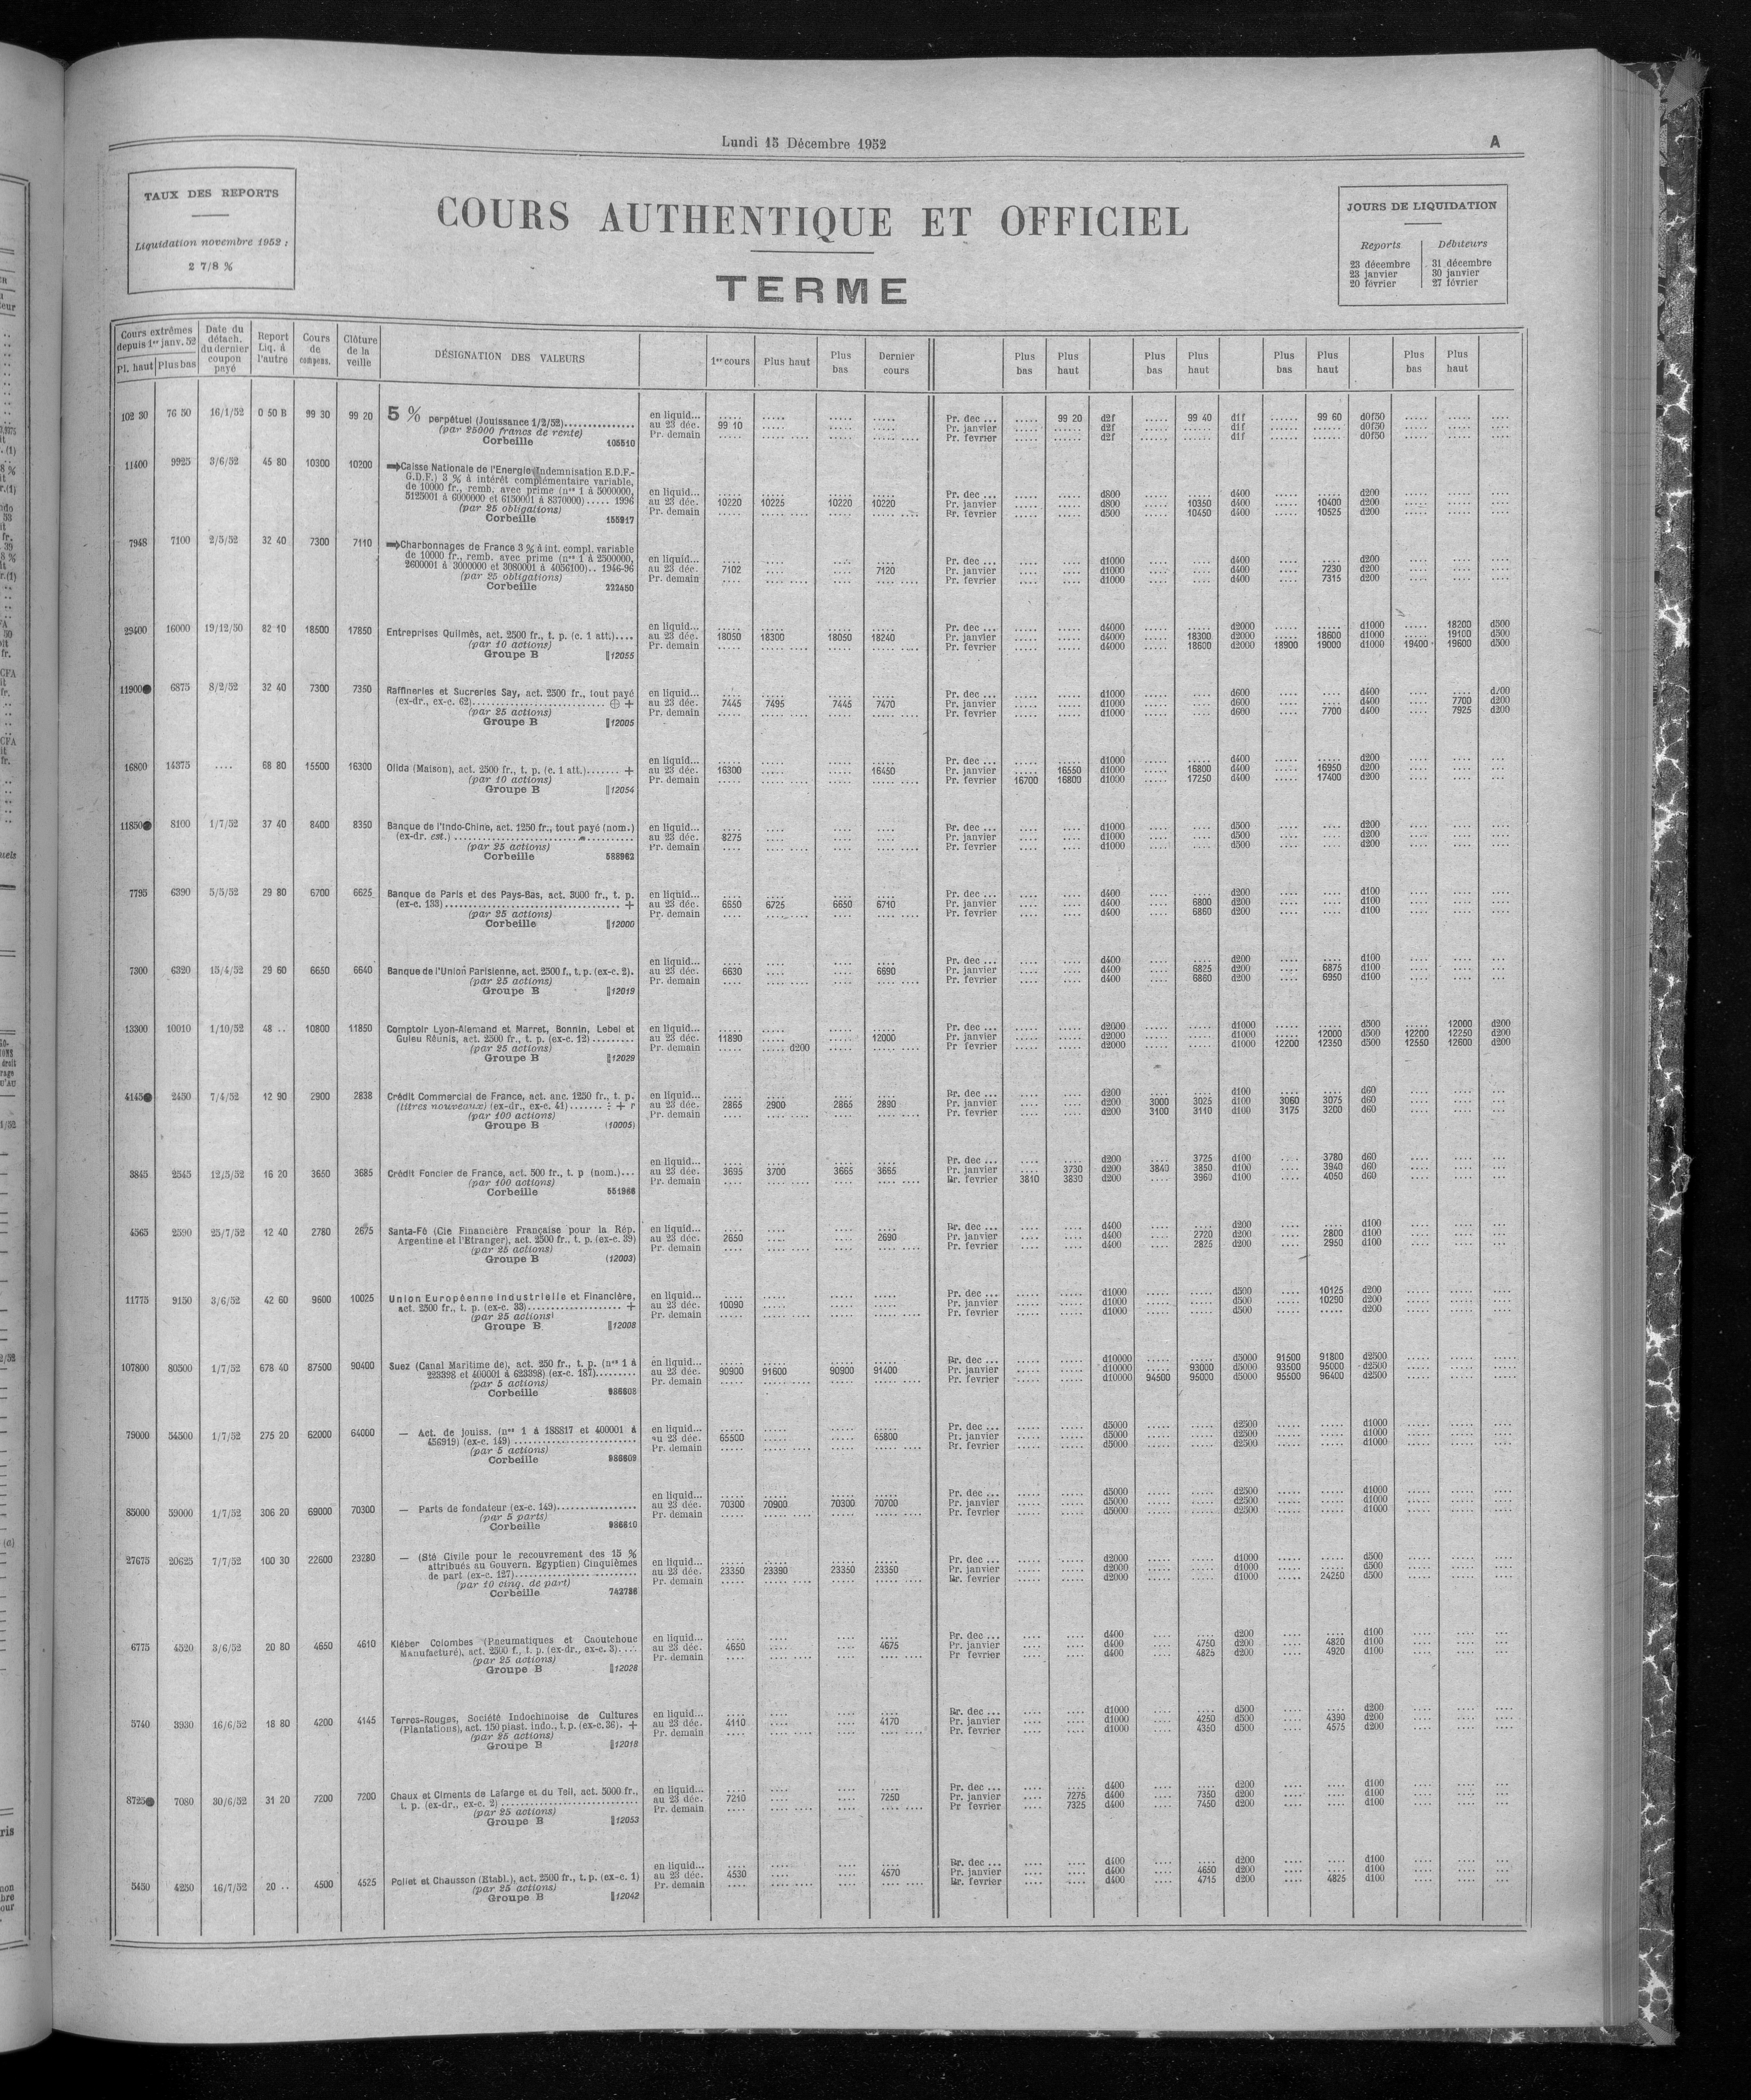 Lundi 15 Décembre 1952 A
TAUX DES REPORTS
Liquidation novembre 1952 :
2 7/8 %
COURS AUTHENTIQUE ET OFFICIEL
TERME
JOURS DE LIQUIDATION
Reports Débiteurs
23 décembre 31 décembre
23 janvier 30 janvier
20 février 27 février
Cours extrêmes depuis 1er janv. 52 Pl. haut Plus bas Date du détach. du dernier coupon payé Report Liq. à l'autre Cours de compens. Clôture de la veille DÉSIGNATION DES VALEURS 1er cours Plus haut Plus bas Dernier cours Plus bas Plus haut Plus bas Plus haut Plus bas Plus haut Plus bas Plus haut
102 30 76 50 16/1/52 0 50 B 99 30 99 20 5 % perpétuel (Jouissance 1/2/52) en liquid... ..... Pr. dec ... ..... 99 20 d2f ..... 99 40 d1f ...... 99 60 d0f50
(par 25000 francs de rente) au 23 déc. 99 10 Pr. janvier d2f d1f d0f50
Corbeille 105510 Pr. demain Pr. fevrier d2f d1f d0f50
11400 9925 3/6/52 45 80 10300 10200 Caisse Nationale de l'Energie (Indemnisation E.D.F.-
G.D.F.) 3 % à intérêt complémentaire variable,
de 10000 fr., remb. avec prime (nos 1 à 5000000, en liquid... Pr. dec ... d800 d400 d200
5125001 à 6000000 et 6150001 à 8370000)..... 1996 au 23 déc. 10220 10225 10220 10220 Pr. janvier d800 10350 d400 10400 d200
(par 25 obligations) Pr. demain Pr. fevrier d500 10450 d400 10525 d200
Corbeille 155917
7948 7100 2/5/52 32 40 7300 7110 Charbonnages de France 3 % à int. compl. variable
de 10000 fr., remb. avec prime (nos 1 à 2500000, en liquid... Pr. dec ... d1000 d400 d200
2600001 à 3000000 et 3080001 à 4056100).. 1946-96 au 23 déc. 7102 7120 Pr. janvier d1000 d400 7230 d200
(par 25 obligations) Pr. demain Pr. fevrier d1000 d400 7315 d200
Corbeille 222450
29400 16000 19/12/50 82 10 18500 17850 Entreprises Quilmès, act. 2500 fr., t. p. (c. 1 att.).... en liquid... Pr. dec ... d4000 d2000 d1000 18200 d500
(par 10 actions) au 23 déc. 18050 18300 18050 18240 Pr. janvier d4000 18300 d2000 ..... 18600 d1000 ..... 19100 d500
Groupe B 12055 Pr. demain Pr. fevrier d4000 18600 d2000 18900 19000 d1000 19400 19600 d500
11900 6875 8/2/52 32 40 7300 7350 Raffineries et Sucreries Say, act. 2500 fr., tout payé en liquid... Pr. dec ... d1000 d600 d400 d200
(ex-dr., ex-c. 62) ⊕ + au 23 déc. 7445 7495 7445 7470 Pr. janvier d1000 d600 d400 7700 d200
(par 25 actions) Pr. demain Pr. fevrier d1000 d600 7700 d400 7925 d200
Groupe B 12005
16800 14375 .... 68 80 15500 16300 Olida (Maison), act. 2500 fr., t. p. (c. 1 att.)....... + en liquid... Pr. dec ... d1000 d400 d200
(par 10 actions) au 23 déc. 16300 16450 Pr. janvier ..... 16550 d1000 16800 d400 16950 d200
Groupe B 12054 Pr. demain Pr. fevrier 16700 16800 d1000 17250 d400 17400 d200
11850 8100 1/7/52 37 40 8400 8350 Banque de l'Indo-Chine, act. 1250 fr., tout payé (nom.) en liquid... Br. dec ... d1000 d500 d200
(ex-dr. est.) au 23 déc. 8275 Pr. janvier d1000 d500 d200
(par 25 actions) Pr. demain Pr. fevrier d1000 d500 d200
Corbeille 588962
7795 6390 5/5/52 29 80 6700 6625 Banque de Paris et des Pays-Bas, act. 3000 fr., t. p. en liquid... Pr. dec ... d400 d200 d100
(ex-c. 133) + au 23 déc. 6650 6725 6650 6710 Pr. janvier d400 6800 d200 d100
(par 25 actions) Pr. demain Pr. fevrier d400 6860 d200 d100
Corbeille 12000
7300 6320 15/4/52 29 60 6650 6640 Banque de l'Union Parisienne, act. 2500 f., t. p. (ex-c. 2). en liquid... Pr. dec ... d400 d200 d100
(par 25 actions) au 23 déc. 6630 6690 Pr. janvier d400 6825 d200 6875 d100
Groupe B 12019 Pr. demain Pr. fevrier d400 6860 d200 6950 d100
13300 10010 1/10/52 48 .. 10800 11850 Comptoir Lyon-Alemand et Marret, Bonnin, Lebel et en liquid... Pr. dec ... d2000 d1000 d500 12000 d200
Guieu Réunis, act. 2500 fr., t. p. (ex-c. 12) au 23 déc. 11890 12000 Pr. janvier d2000 d1000 12000 d500 12200 12250 d200
(par 25 actions) Pr. demain ..... d200 Pr fevrier d2000 d1000 12200 12350 d500 12550 12600 d200
Groupe B 12029
4145 2450 7/4/52 12 90 2900 2838 Crédit Commercial de France, act. anc. 1250 fr., t. p. en liquid... Br. dec ... d200 d100 d60
(titres nouveaux) (ex-dr., ex-c. 41)....... ÷ + r au 23 déc. 2865 2900 2865 2890 Pr. janvier d200 3000 3025 d100 3060 3075 d60
(par 100 actions) Pr. demain Pr. fevrier d200 3100 3110 d100 3175 3200 d60
Groupe B (10005)
3845 2545 12/5/52 16 20 3650 3685 Crédit Foncier de France, act. 500 fr., t. p (nom.)... en liquid... Pr. dec ... d200 3725 d100 3780 d60
(par 100 actions) au 23 déc. 3695 3700 3665 3665 Pr. janvier .... 3730 d200 3840 3850 d100 3940 d60
Corbeille 551966 Pr. demain Br. fevrier 3810 3830 d200 3960 d100 4050 d60
4565 2590 25/7/52 12 40 2780 2675 Santa-Fé (Cie Financière Française pour la Rép. en liquid... Br. dec ... d400 d200 d100
Argentine et l'Etranger), act. 2500 fr., t. p. (ex-c. 39) au 23 déc. 2650 2690 Pr. janvier d400 2720 d200 2800 d100
(par 25 actions) Pr. demain Pr. fevrier d400 2825 d200 2950 d100
Groupe B (12003)
11775 9150 3/6/52 42 60 9600 10025 Union Européenne Industrielle et Financière, en liquid... Pr. dec ... d1000 d500 10125 d200
act. 2500 fr., t. p. (ex-c. 33) + au 23 déc. 10090 Pr. janvier d1000 d500 10290 d200
(par 25 actions) Pr. demain Pr. fevrier d1000 d500 d200
Groupe B 12008
107800 80500 1/7/52 678 40 87500 90400 Suez (Canal Maritime de), act. 250 fr., t. p. (nos 1 à en liquid... Br. dec ... d10000 d5000 91500 91800 d2500
223398 et 400001 à 623398) (ex-c. 187) au 23 déc. 90900 91600 90900 91400 Pr. janvier d10000 93000 d5000 93500 95000 d2500
(par 5 actions) Pr. demain Pr. fevrier d10000 94500 95000 d5000 95500 96400 d2500
Corbeille 986608
79000 54500 1/7/52 275 20 62000 64000 — Act. de jouiss. (nos 1 à 188817 et 400001 à en liquid... Pr. dec ... d5000 d2500 d1000
456919) (ex-c. 149) au 23 déc. 65500 65800 Pr. janvier d5000 d2500 d1000
(par 5 actions) Pr. demain Br. fevrier d5000 d2500 d1000
Corbeille 986609
85000 59000 1/7/52 306 20 69000 70300 — Parts de fondateur (ex-c. 149) en liquid... Pr. dec ... d5000 d2500 d1000
(par 5 parts) au 23 déc. 70300 70900 70300 70700 Pr. janvier d5000 d2500 d1000
Corbeille 986610 Pr. demain Pr. fevrier d5000 d2500 d1000
27675 20625 7/7/52 100 30 22600 23280 — (Sté Civile pour le recouvrement des 15 %
attribués au Gouvern. Egyptien) Cinquièmes en liquid... Pr. dec ... d2000 d1000 d500
de part (ex-c. 127) au 23 déc. 23350 23390 23350 23350 Pr. janvier d2000 d1000 d500
(par 10 cinq. de part) Pr. demain Br. fevrier d2000 d1000 24250 d500
Corbeille 742786
6775 4520 3/6/52 20 80 4650 4610 Kléber Colombes (Pneumatiques et Caoutchouc en liquid... Br. dec ... d400 d200 d100
Manufacturé), act. 2500 f., t. p. (ex-dr., ex-c. 3).... au 23 déc. 4650 4675 Pr. janvier d400 4750 d200 4820 d100
(par 25 actions) Pr. demain Pr fevrier d400 4825 d200 4920 d100
Groupe B 12028
5740 3930 16/6/52 18 80 4200 4145 Terres-Rouges, Société Indochinoise de Cultures en liquid... Br. dec ... d1000 d500 d200
(Plantations), act. 150 piast. indo., t. p. (ex-c. 36). + au 23 déc. 4110 4170 Pr. janvier d1000 4250 d500 4390 d200
(par 25 actions) Pr. demain Pr. fevrier d1000 4350 d500 4575 d200
Groupe B 12018
8725 7080 30/6/52 31 20 7200 7200 Chaux et Ciments de Lafarge et du Teil, act. 5000 fr., en liquid... Pr. dec ... d400 d200 d100
t. p. (ex-dr., ex-c. 2) au 23 déc. 7210 7250 Pr. janvier 7275 d400 7350 d200 d100
(par 25 actions) Pr. demain Pr fevrier 7325 d400 7450 d200 d100
Groupe B 12053
5450 4250 16/7/52 20 .. 4500 4525 Poliet et Chausson (Etabl.), act. 2500 fr., t. p. (ex-c. 1) en liquid... Br. dec ... d400 d200 d100
(par 25 actions) au 23 déc. 4530 4570 Pr. janvier d400 4650 d200 d100
Groupe B 12042 Pr. demain Br. fevrier d400 4715 d200 4825 d100